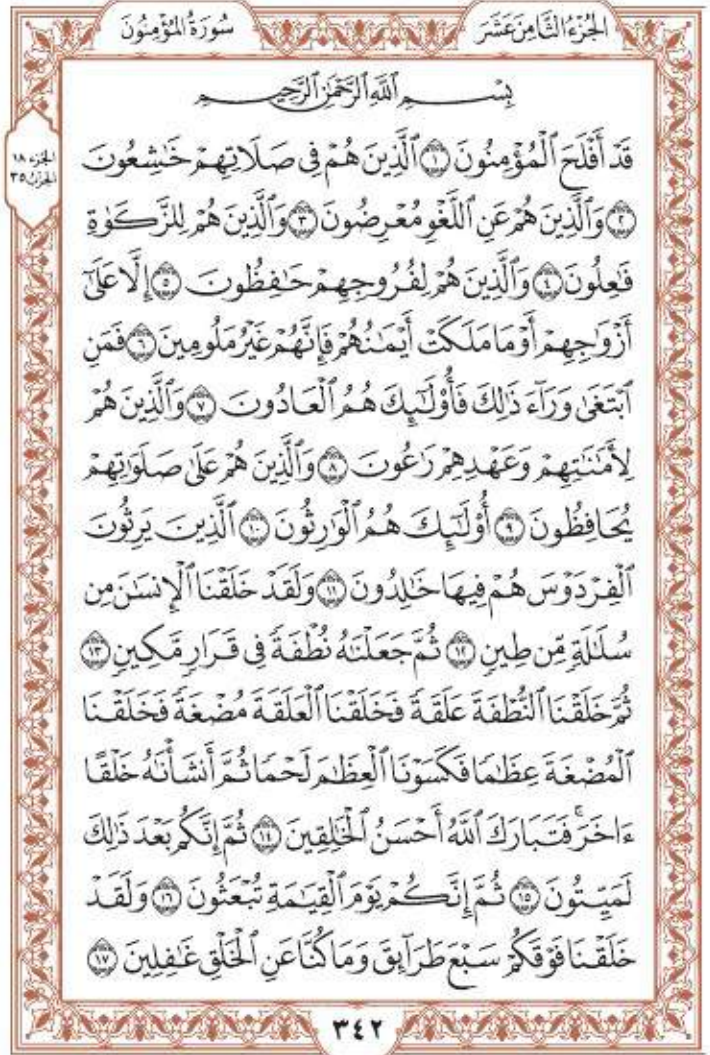 الجُزْءُ الثَّامِنَ عَشَرَ
سُورَةُ المُؤْمِنُونَ
الجزء ١٨
الحزب ٣٥
بِسْمِ ٱللَّهِ ٱلرَّحْمَٰنِ ٱلرَّحِيمِ
قَدْ أَفْلَحَ ٱلْمُؤْمِنُونَ ١ ٱلَّذِينَ هُمْ فِى صَلَاتِهِمْ خَٰشِعُونَ
٢ وَٱلَّذِينَ هُمْ عَنِ ٱللَّغْوِ مُعْرِضُونَ ٣ وَٱلَّذِينَ هُمْ لِلزَّكَوٰةِ
فَٰعِلُونَ ٤ وَٱلَّذِينَ هُمْ لِفُرُوجِهِمْ حَٰفِظُونَ ٥ إِلَّا عَلَىٰٓ
أَزْوَٰجِهِمْ أَوْ مَا مَلَكَتْ أَيْمَٰنُهُمْ فَإِنَّهُمْ غَيْرُ مَلُومِينَ ٦ فَمَنِ
ٱبْتَغَىٰ وَرَآءَ ذَٰلِكَ فَأُو۟لَٰٓئِكَ هُمُ ٱلْعَادُونَ ٧ وَٱلَّذِينَ هُمْ
لِأَمَٰنَٰتِهِمْ وَعَهْدِهِمْ رَٰعُونَ ٨ وَٱلَّذِينَ هُمْ عَلَىٰ صَلَوَٰتِهِمْ
يُحَافِظُونَ ٩ أُو۟لَٰٓئِكَ هُمُ ٱلْوَٰرِثُونَ ١٠ ٱلَّذِينَ يَرِثُونَ
ٱلْفِرْدَوْسَ هُمْ فِيهَا خَٰلِدُونَ ١١ وَلَقَدْ خَلَقْنَا ٱلْإِنسَٰنَ مِن
سُلَٰلَةٍ مِّن طِينٍ ١٢ ثُمَّ جَعَلْنَٰهُ نُطْفَةً فِى قَرَارٍ مَّكِينٍ ١٣
ثُمَّ خَلَقْنَا ٱلنُّطْفَةَ عَلَقَةً فَخَلَقْنَا ٱلْعَلَقَةَ مُضْغَةً فَخَلَقْنَا
ٱلْمُضْغَةَ عِظَٰمًا فَكَسَوْنَا ٱلْعِظَٰمَ لَحْمًا ثُمَّ أَنشَأْنَٰهُ خَلْقًا
ءَاخَرَ ۚ فَتَبَارَكَ ٱللَّهُ أَحْسَنُ ٱلْخَٰلِقِينَ ١٤ ثُمَّ إِنَّكُم بَعْدَ ذَٰلِكَ
لَمَيِّتُونَ ١٥ ثُمَّ إِنَّكُمْ يَوْمَ ٱلْقِيَٰمَةِ تُبْعَثُونَ ١٦ وَلَقَدْ
خَلَقْنَا فَوْقَكُمْ سَبْعَ طَرَآئِقَ وَمَا كُنَّا عَنِ ٱلْخَلْقِ غَٰفِلِينَ ١٧
٣٤٢